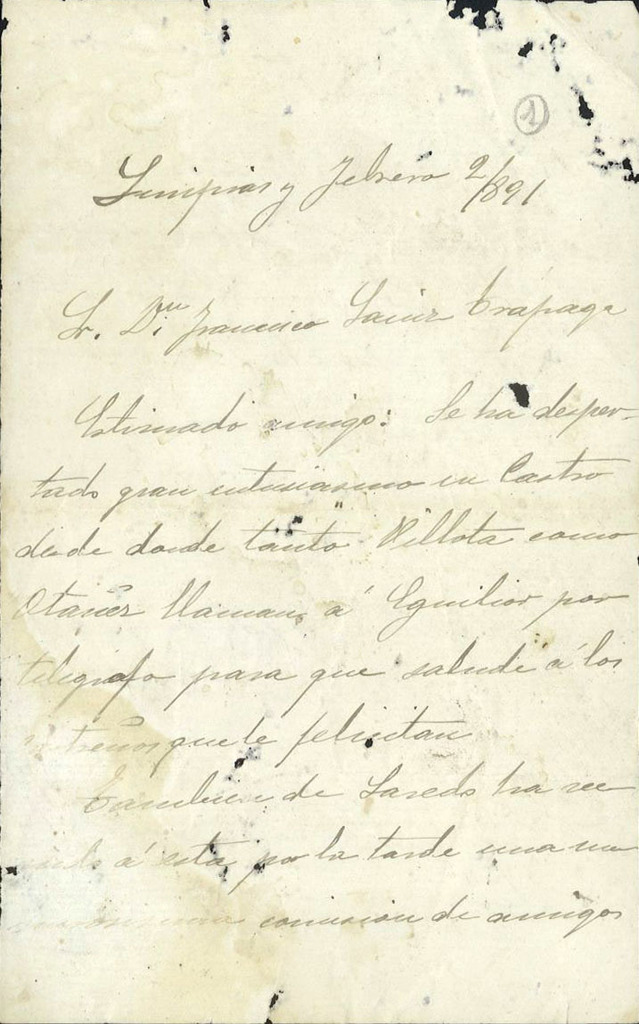 1
Limpias y Febrero 2/891
Sr. Dn. Francisco Sainz Trápaga
Estimado amigo: Se ha desper-
tado gran entusiasmo en Castro
desde donde tanto Villota como
Otañes llaman á Eguilior por
telégrafo para que salude á los
que le felicitan
Tambien de Laredo ha ve
á esta por la tarde una nu
comision de amigos